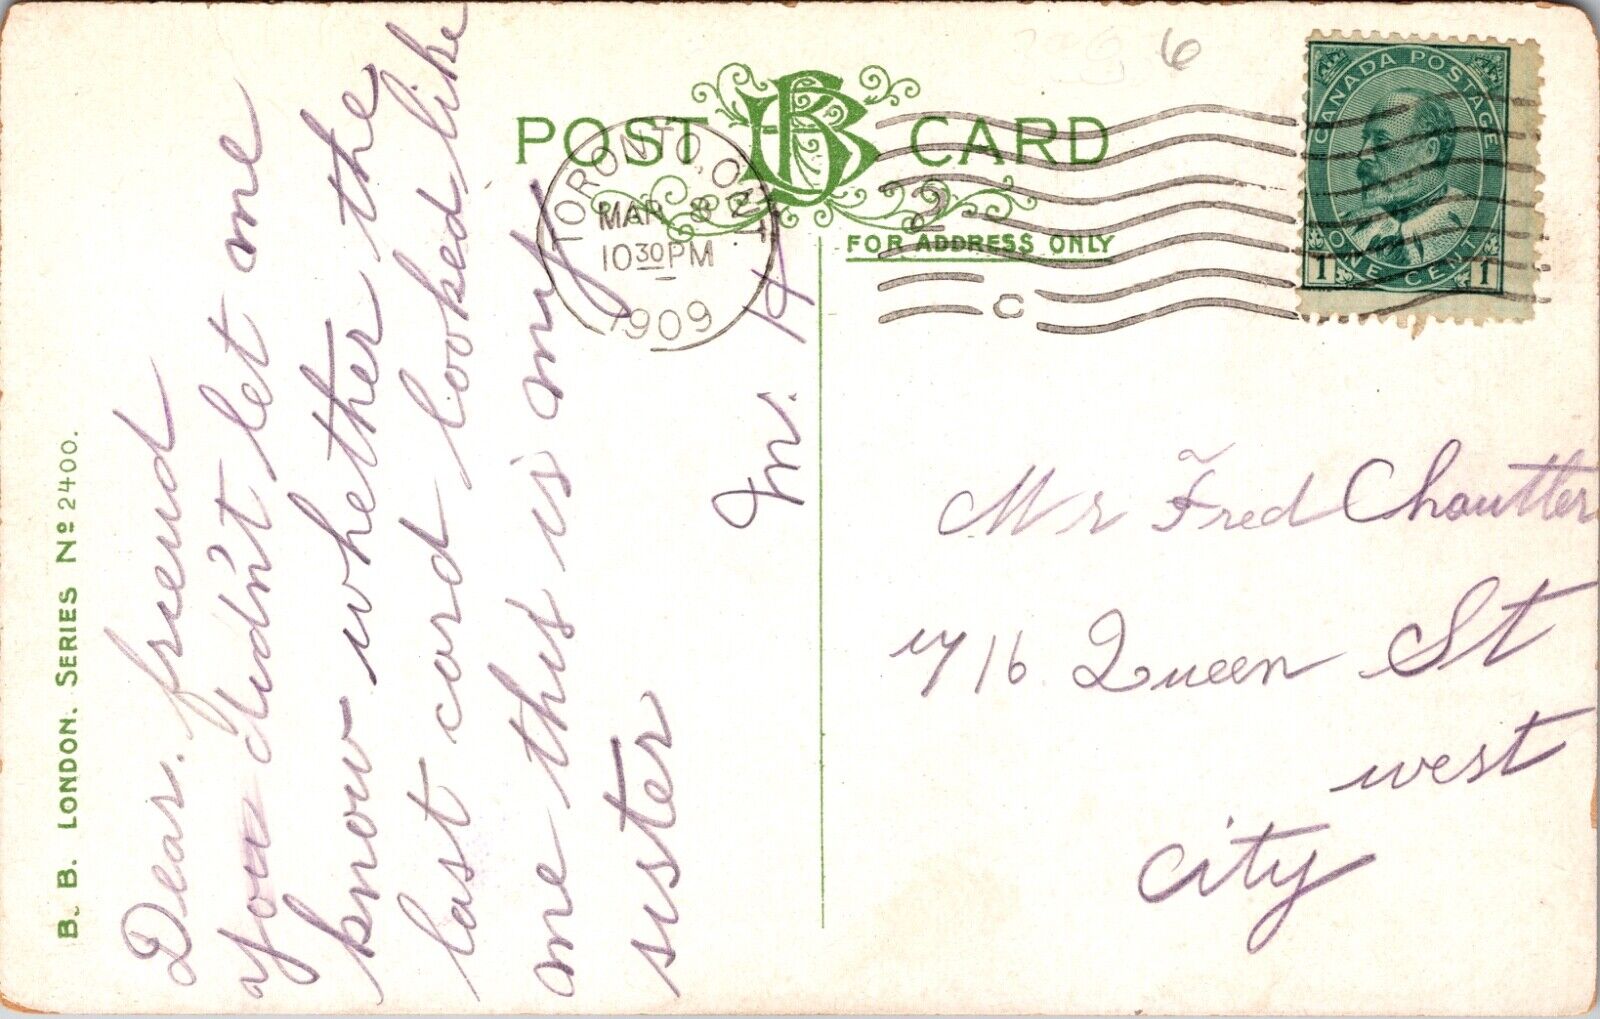 POST CARD
FOR ADDRESS ONLY
B. B. LONDON. SERIES Nº 2400.
TORONTO, ONT
MAR 8
10 30 PM
1909
2
C
6
CANADA POSTAGE
ONE CENT
1 1
Dear. friend
you didn't let me
know whether the
last card looked like
me this is my
sister
M. H
Mr Fred Choutter
716 Queen St
west
City